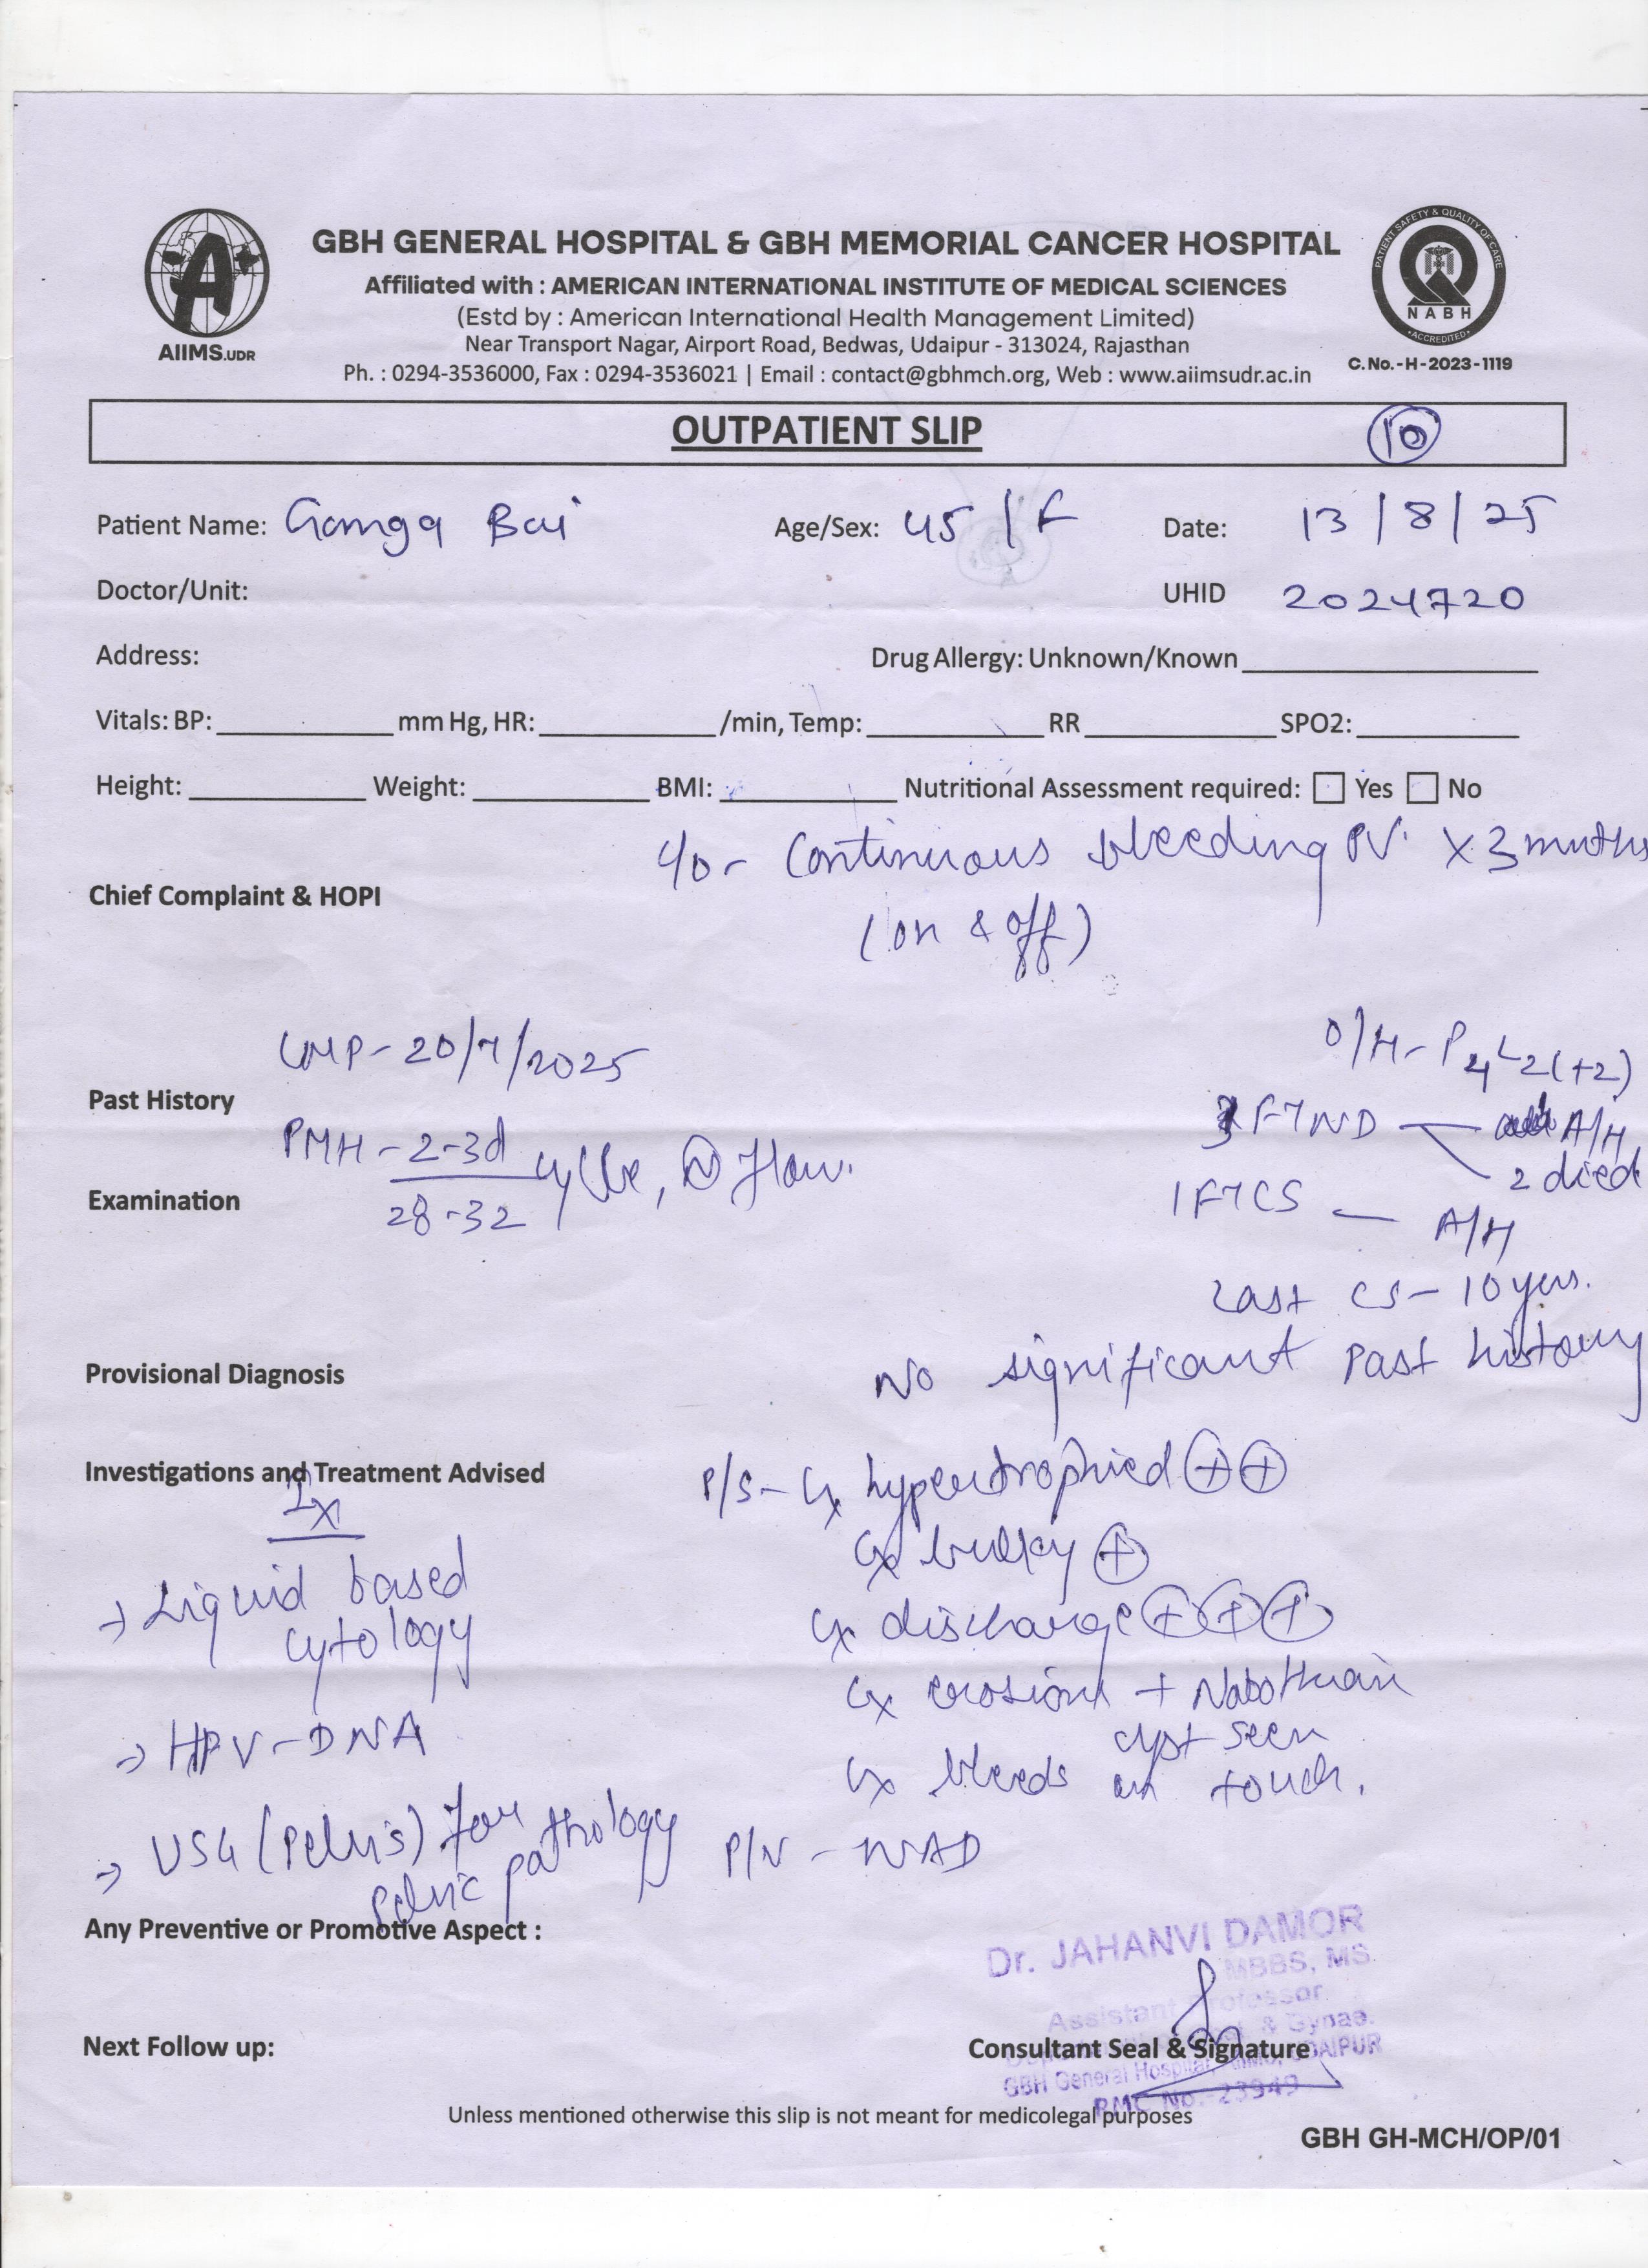 AIIMS.UDR
GBH GENERAL HOSPITAL & GBH MEMORIAL CANCER HOSPITAL
Affiliated with : AMERICAN INTERNATIONAL INSTITUTE OF MEDICAL SCIENCES
(Estd by : American International Health Management Limited)
Near Transport Nagar, Airport Road, Bedwas, Udaipur - 313024, Rajasthan
Ph. : 0294-3536000, Fax : 0294-3536021 | Email : contact@gbhmch.org, Web : www.aiimsudr.ac.in
PATIENT SAFETY & QUALITY OF CARE
NABH
ACCREDITED
C.No.-H-2023-1119
OUTPATIENT SLIP 10
Patient Name: Ganga Bai Age/Sex: 45 / F Date: 13/8/25
Doctor/Unit: UHID 2024720
Address: Drug Allergy: Unknown/Known
Vitals: BP: mm Hg, HR: /min, Temp: RR SPO2:
Height: Weight: BMI: Nutritional Assessment required: Yes No
c/o - Continuous bleeding PV x 3 months
Chief Complaint & HOPI
(on & off)
LMP - 20/7/2025
O/H - P4 L2 (+2)
Past History
3 FTND A/H
2 died
PMH - 2-3d cycle, N flow.
28-32
Examination
1 FTCS - A/H
Last CS - 10 yrs.
Provisional Diagnosis
No significant past history
Investigations and Treatment Advised
Ix
P/S - Cx hypertrophied ++
Cx bulky +
→ Liquid based
cytology
Cx discharge +++
Cx erosion + Nabothian
cyst seen
→ HPV-DNA
Cx bleeds on touch.
→ USG (Pelvis) for
pelvic pathology
P/V - NAD
Any Preventive or Promotive Aspect :
Dr. JAHANVI DAMOR
MBBS, MS
Assistant Professor
& Gynae.
Next Follow up: Consultant Seal & Signature
GBH General Hospital, UDAIPUR
RMC No.-23949
Unless mentioned otherwise this slip is not meant for medicolegal purposes
GBH GH-MCH/OP/01